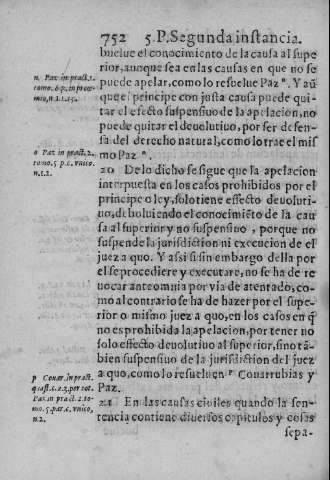 752 5. P. Segunda instancia.
buelue el conocimiento de la causa al supe
rior, aunque sea en las causas en que no se
puede apelar, como lo resuelue Paz n. Y aũ
que el principe con justa causa puede qui-
tar el effecto suspensiuo de la apelacion, no
puede quitar el deuolutiuo, por ser defen-
sa del derecho natural, como lo trae el mis
mo Paz o.
20 De lo dicho se sigue que la apelacion
interpuesta en los casos prohibidos por el
principe o ley, solo tiene effecto deuoluti-
uo, deboluiendo el conocimiẽto de la cau
sa al superior y no suspensiuo, porque no
suspende la jurisdiction ni execucion de el
juez a quo. Y assi si sin embargo della por
el se procediere y executare, no se ha de re
uocar ante omnia por via de atentado, co-
mo al contrario se ha de hazer por el supe-
rior o mismo juez a quo, en los casos en q̃
no es prohibida la apelacion, por tener no
solo effecto deuolutiuo al superior, sino tã-
bien suspensiuo de la jurisdiction del juez
a quo, como lo resueluen p Couarrubias y
Paz.
21 En las causas ciuiles quando la sen-
tencia contiene diuersos capitulos y cosas
sepa-
n Paz in pract. 1.
tomo. 6. p. in prooe-
mio, n.
o Paz in pract. 2.
tomo. 5. p. c. vnico.
n. 12.
p Couar. in pract.
q. c. 23. per tot.
Paz in pract. 2. to-
mo. 5. par. c. vnico,
n. 2.